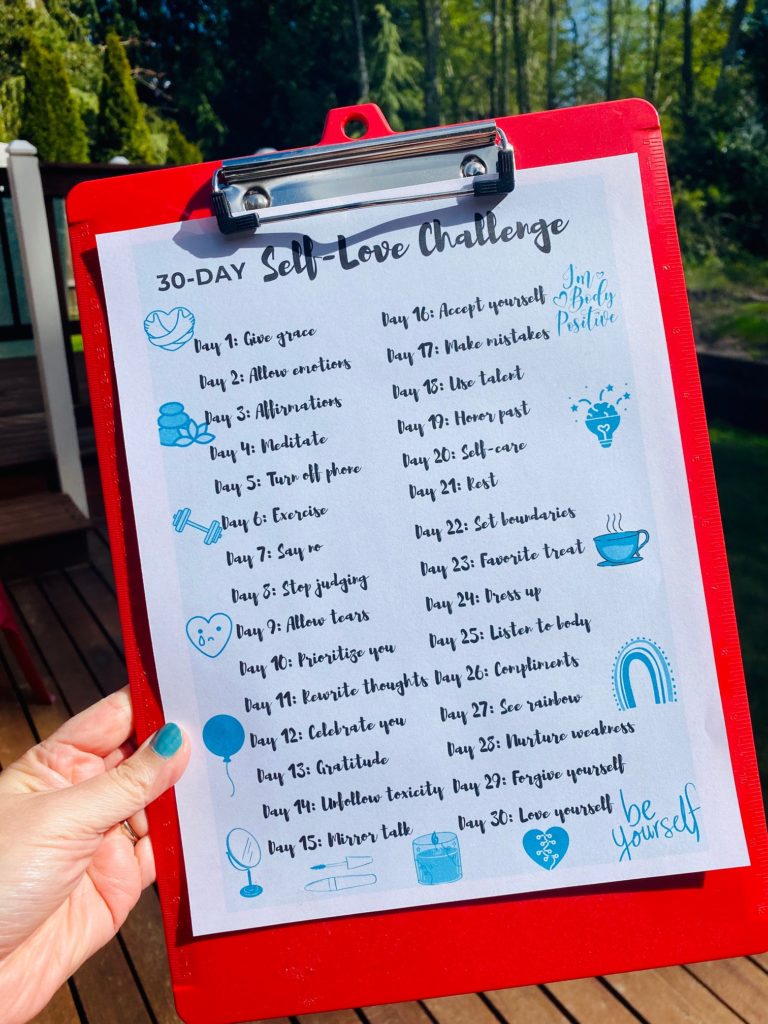 30-DAY Self-Love Challenge
Day 1: Give grace
Day 2: Allow emotions
Day 3: Affirmations
Day 4: Meditate
Day 5: Turn off phone
Day 6: Exercise
Day 7: Say no
Day 8: Stop judging
Day 9: Allow tears
Day 10: Prioritize you
Day 11: Rewrite thoughts
Day 12: Celebrate you
Day 13: Gratitude
Day 14: Unfollow toxicity
Day 15: Mirror talk
Day 16: Accept yourself
Day 17: Make mistakes
Day 18: Use talent
Day 19: Honor past
Day 20: Self-care
Day 21: Rest
Day 22: Set boundaries
Day 23: Favorite treat
Day 24: Dress up
Day 25: Listen to body
Day 26: Compliments
Day 27: See rainbow
Day 28: Nurture weakness
Day 29: Forgive yourself
Day 30: Love yourself
I'm
Body
Positive
be
yourself